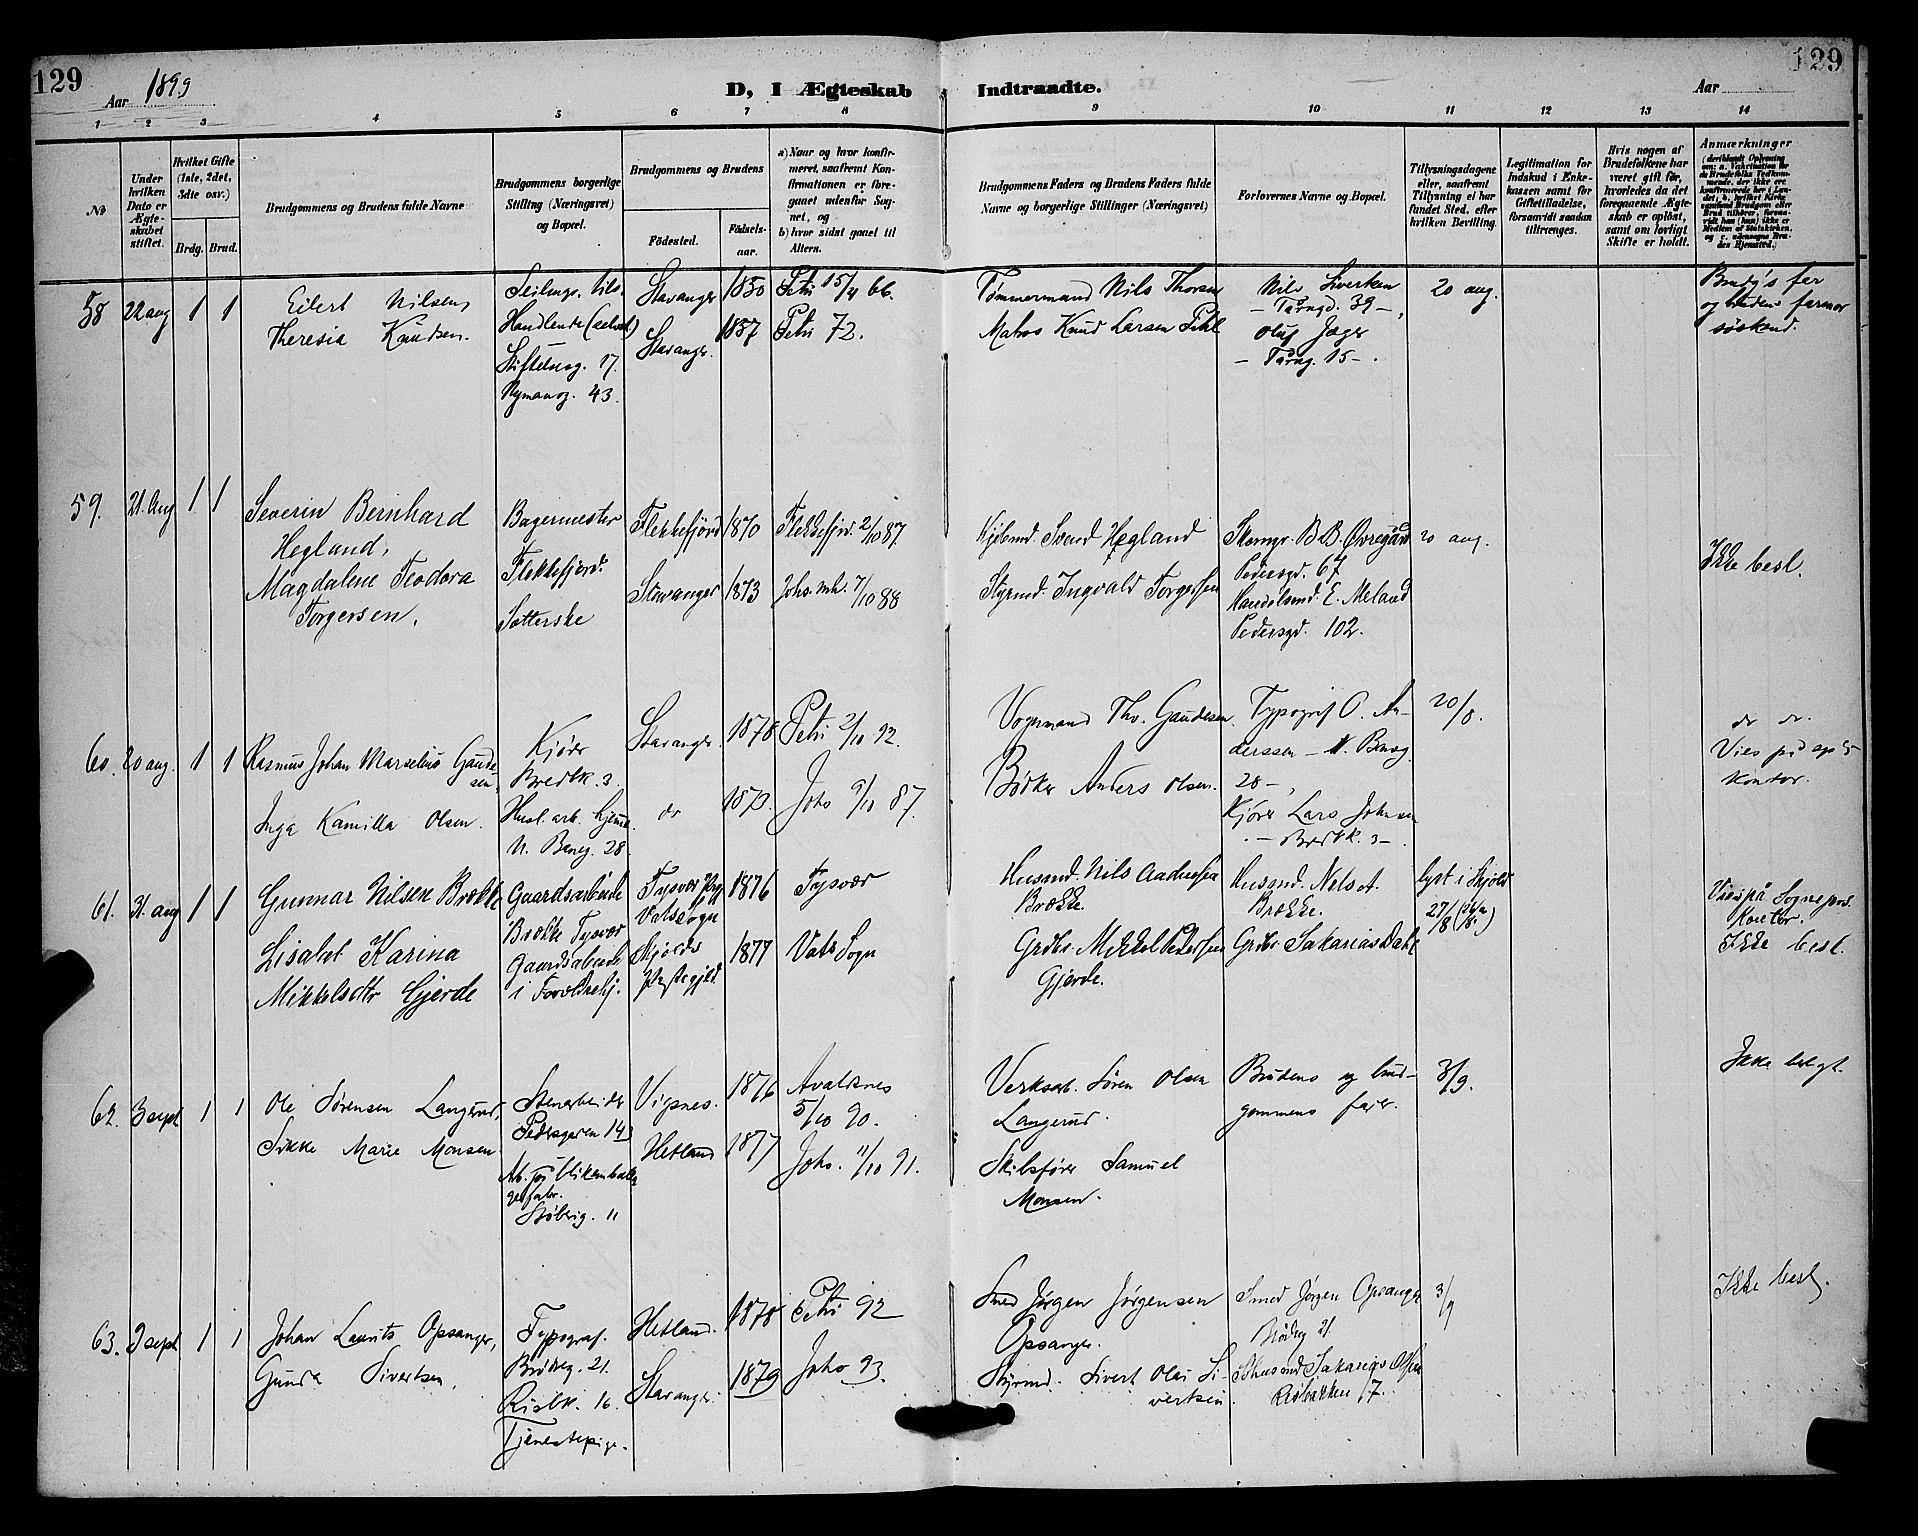 129
Aar 1899
D, I Ægteskab Indtraadte.
Aar
129
1 2 3 4 5 6 7 8 9 10 11 12 13 14
№
Under hvilken Dato er Ægteskabet stiftet.
Hvilket Gifte (1ste, 2det, 3dte osv.)
Brdg. Brud.
Brudgommens og Brudens fulde Navne
Brudgommens borgerlige Stilling (Næringsvei) og Bopæl.
Brudgommens og Brudens
Fødested.
Fødselsaar.
a) Naar og hvor konfirmeret, saafremt Konfirmationen er foregaaet udenfor Sognet, og
b) hvor sidst gaaet til Alters.
Brudgommens Faders og Brudens Faders fulde Navne og borgerlige Stillinger (Næringsvei)
Forlovernes Navne og Bopæl.
Tillysningsdagene eller, saafremt Tillysning ei har fundet Sted, efter hvilken Bevilling.
Legitimation for Indskud i Enkekassen samt for Giftetilladelse, forsaavidt saadan tiltrænges.
Hvis nogen af Brudefolkene har været gift før, hvorledes da det foregaaende Ægteskab er opløst, samt om lovligt Skifte er holdt.
Anmærkninger
58 22 aug 1 1
Eilert Nilsen,
Theresia Knudsen.
Handlende
17.
43.
Stavanger 1850 Petri 15/4 66.
Stavanger. 1857 Petri 72.
Tømmermand Nils Thorsen
Matros Knud Larsen
39 -,
Oluf Jæger
15 -.
20 aug.
og brudens farmor
søskend.
59. 21. Aug 1 1
Severin Bernhard
Hegland,
Magdalene Teodora
Torgersen.
Bagermester
Flekkefjord.
Flekkefjord 1870 Flekkefjord 2/10 87
Stavanger 1873 Johs. mh. 7/10 88
Svend Hegland
Styrmd. Ingvald Torgersen
B.B. Øvregård
Pedersgd. 67
Handelsmd. E. Meland
Pedersgd. 102.
20 aug.
Ikke besl.
60. 20 aug. 1 1
Rasmus Johan Marselius Gaudesen,
Inga Kamilla Olsen.
Kjører
Bredbk. 3.
Husl. arb. hjemme
N. Baneg. 28.
Stavanger. 1878 Petri 2/10 92.
do 1873. Johs 9/10 87.
Vognmand Thv. Gaudesen.
Bødker Anders Olsen.
Typograf O. Anderssen - N. Baneg
28 -,
Kjører Lars Johnsen
- Bredbk. 3 -.
20/8.
do do.
Vies på
kontor.
61. 31. aug 1 1
Gunnar Nilsen Brække
Lisabet Karina
Mikkelsdtr Gjerde
Gaardsarbeide
Brække Tysvær
Gaardsarbeide
i Forældrehj.
Tysvær
Vatssogn
Skjolds
Præstegjeld
1876 Tysvær
1877 Vats Sogn
Husmd. Nils Aadnesen
Brække.
Grdbr. Mikkel Pedersen
Gjerde.
Husmd. Nels A.
Brække.
Grdbr Sakarias Dahl
lyst i Skjold
27/8
Vies på Sognepræs.
Kontor.
Ikke besl.
62. 3 sept 1 1
Ole Sørensen Langerud,
Sikke Marie Monsen
Stenarbeider
Pedersgaden 143
11
Vigsnes. 1876 Avaldsnes
5/10 90.
Hetland 1877 Johs. 11/10 91.
Verksarb. Søren Olsen
Langerud.
Skibsfører Samuel
Monsen.
Brudens og brudgommens fader.
3/9.
Ikke beslgt.
63. 3 sept 1 1
Johan Laurits Opsanger,
Gunda Sivertsen.
Typograf.
Brødreg. 21.
Risbk. 16.
Tjenestepige.
Hetland. 1878 Petri 92
Stavanger. 1879 Johs 93.
Smed Jørgen Jørgensen
Opsanger.
Styrmd. Sivert Olai Sivertsen.
Smed Jørgen Opsanger
21.
Sakarias Olsen
17.
3/9
Ikke besl.